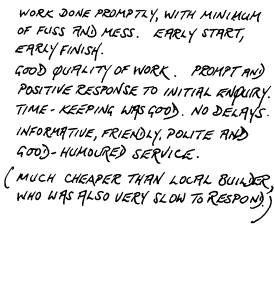 WORK DONE PROMPTLY, WITH MINIMUM
OF FUSS AND MESS. EARLY START,
EARLY FINISH.
GOOD QUALITY OF WORK. PROMPT AND
POSITIVE RESPONSE TO INITIAL ENQUIRY.
TIME-KEEPING WAS GOOD. NO DELAYS.
INFORMATIVE, FRIENDLY, POLITE AND
GOOD-HUMOURED SERVICE.
(MUCH CHEAPER THAN LOCAL BUILDER,
WHO WAS ALSO VERY SLOW TO RESPOND.)